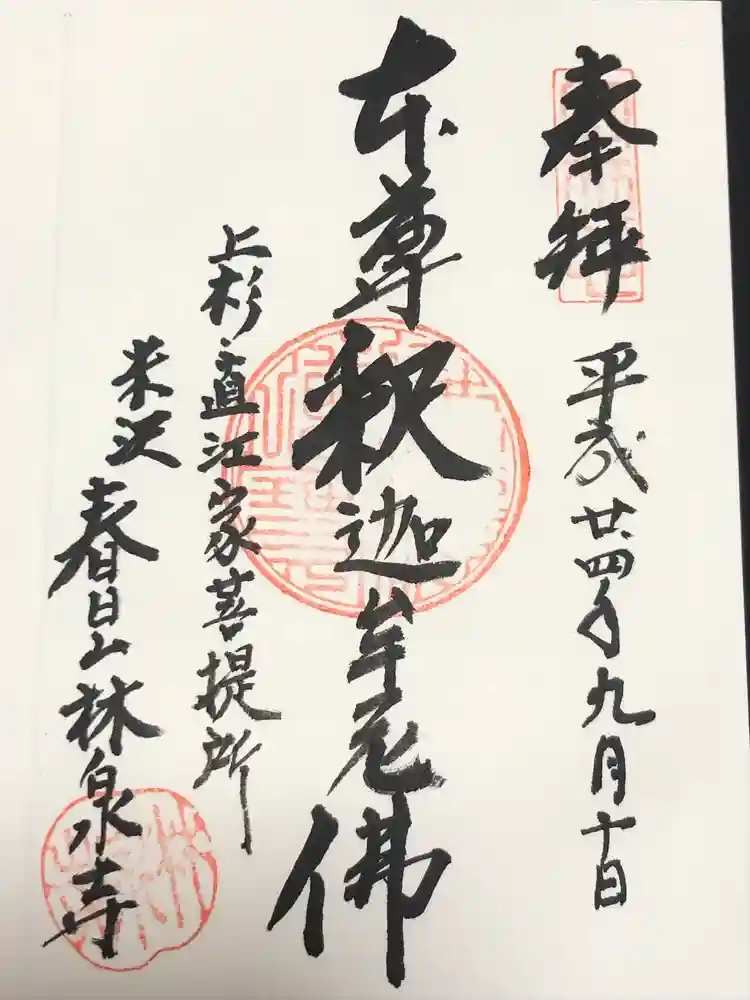 奉拝
平成廿四年九月十日
本尊釈迦牟尼佛
上杉・直江家菩提所
米沢
春日山林泉寺